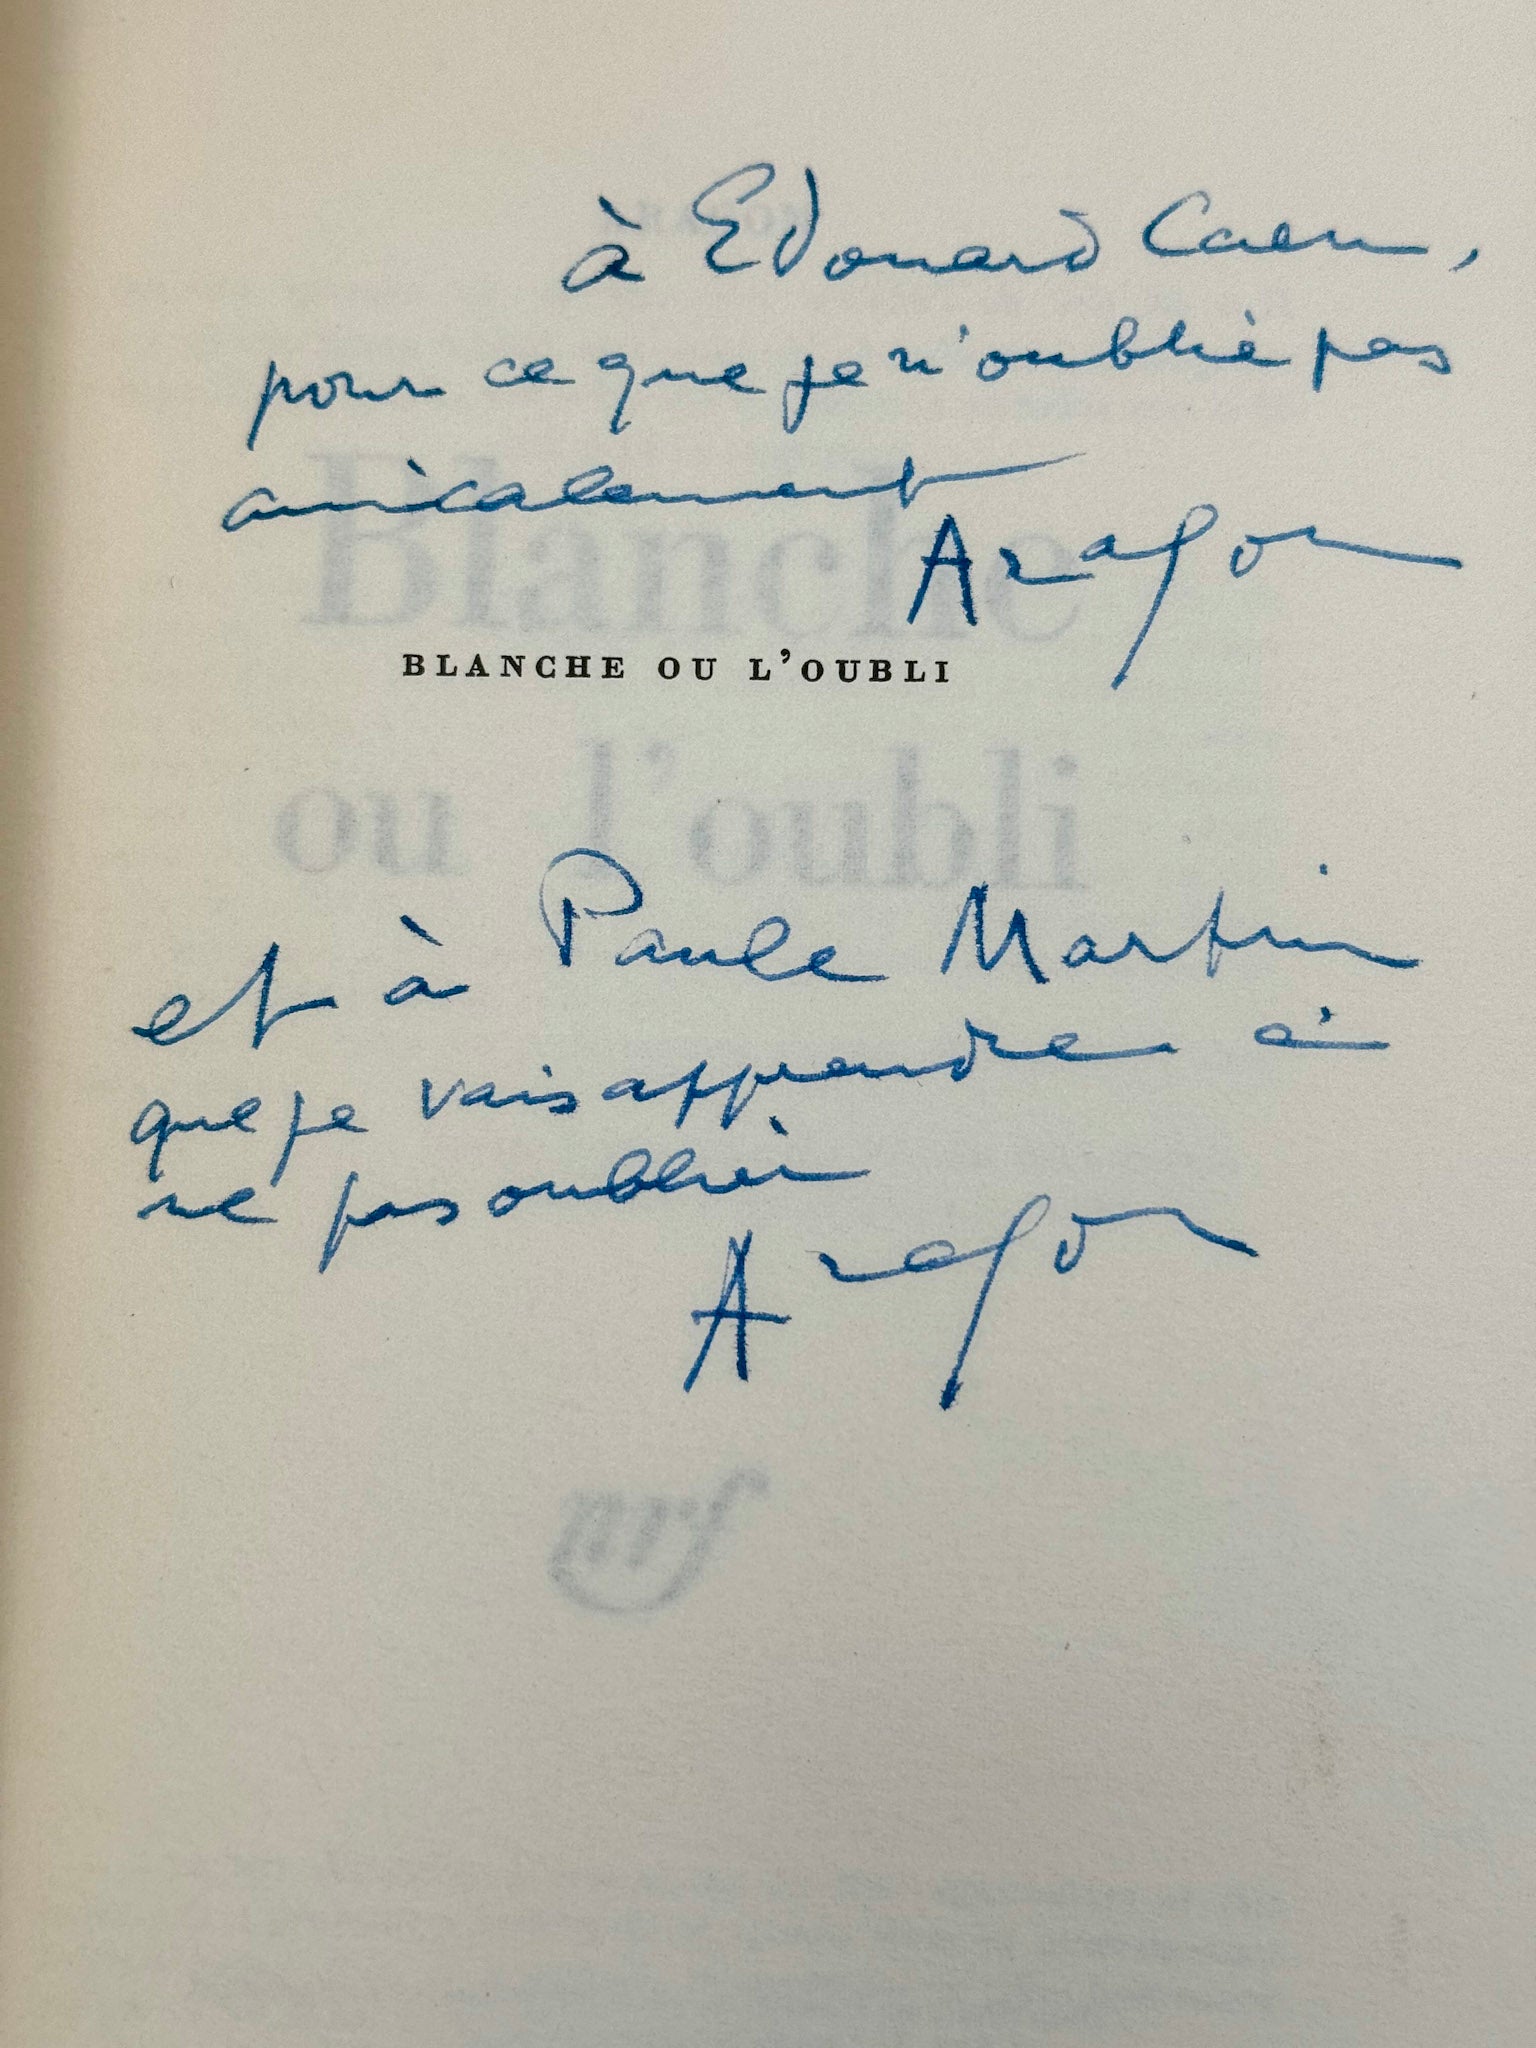 à Edouard Caen,
pour ce que je n'oublie pas
amicalement
Aragon
BLANCHE OU L'OUBLI
et à Paule Martin
que je vais apprendre à
ne pas oublier
Aragon
Blanche
ou l'oubli
nrf